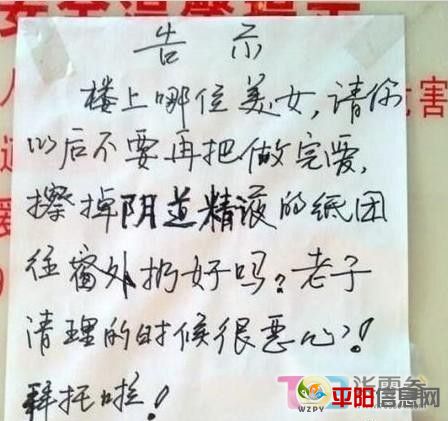 告示
楼上哪位美女,请你
以后不要再把做完爱,
擦掉阴道精液的纸团
往窗外扔好吗?老子
清理的时候很恶心!
拜托啦!
WZPY 平阳信息网